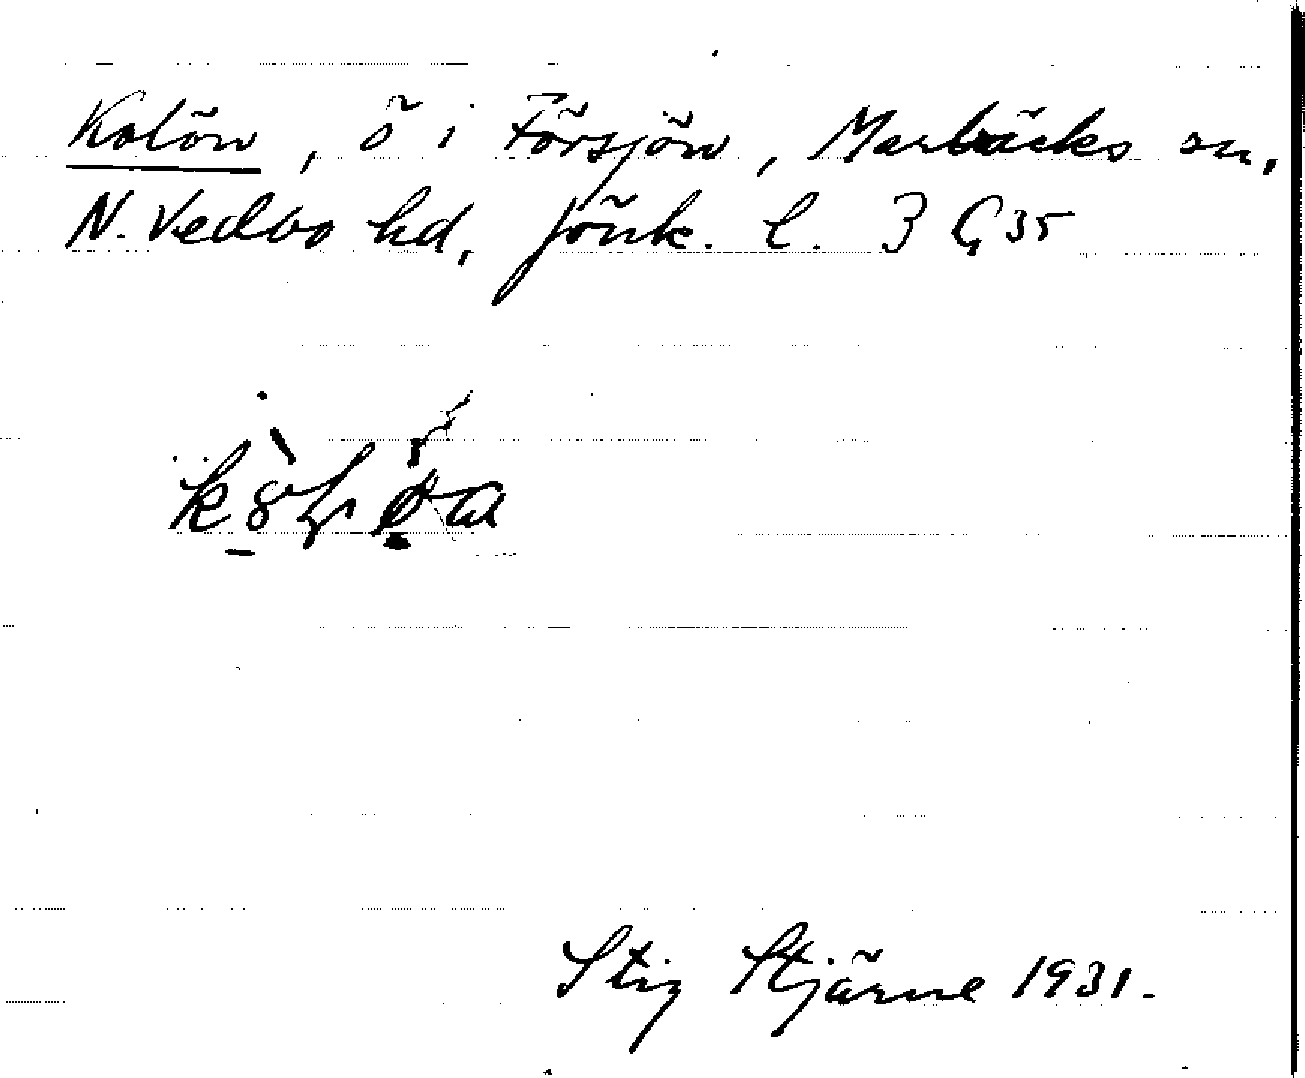 Kolön, ö i Försjön, Marbäcks sn,
N. Vedbo hd, Jönk. l. 3 G 35
Stig Stjärne 1931.